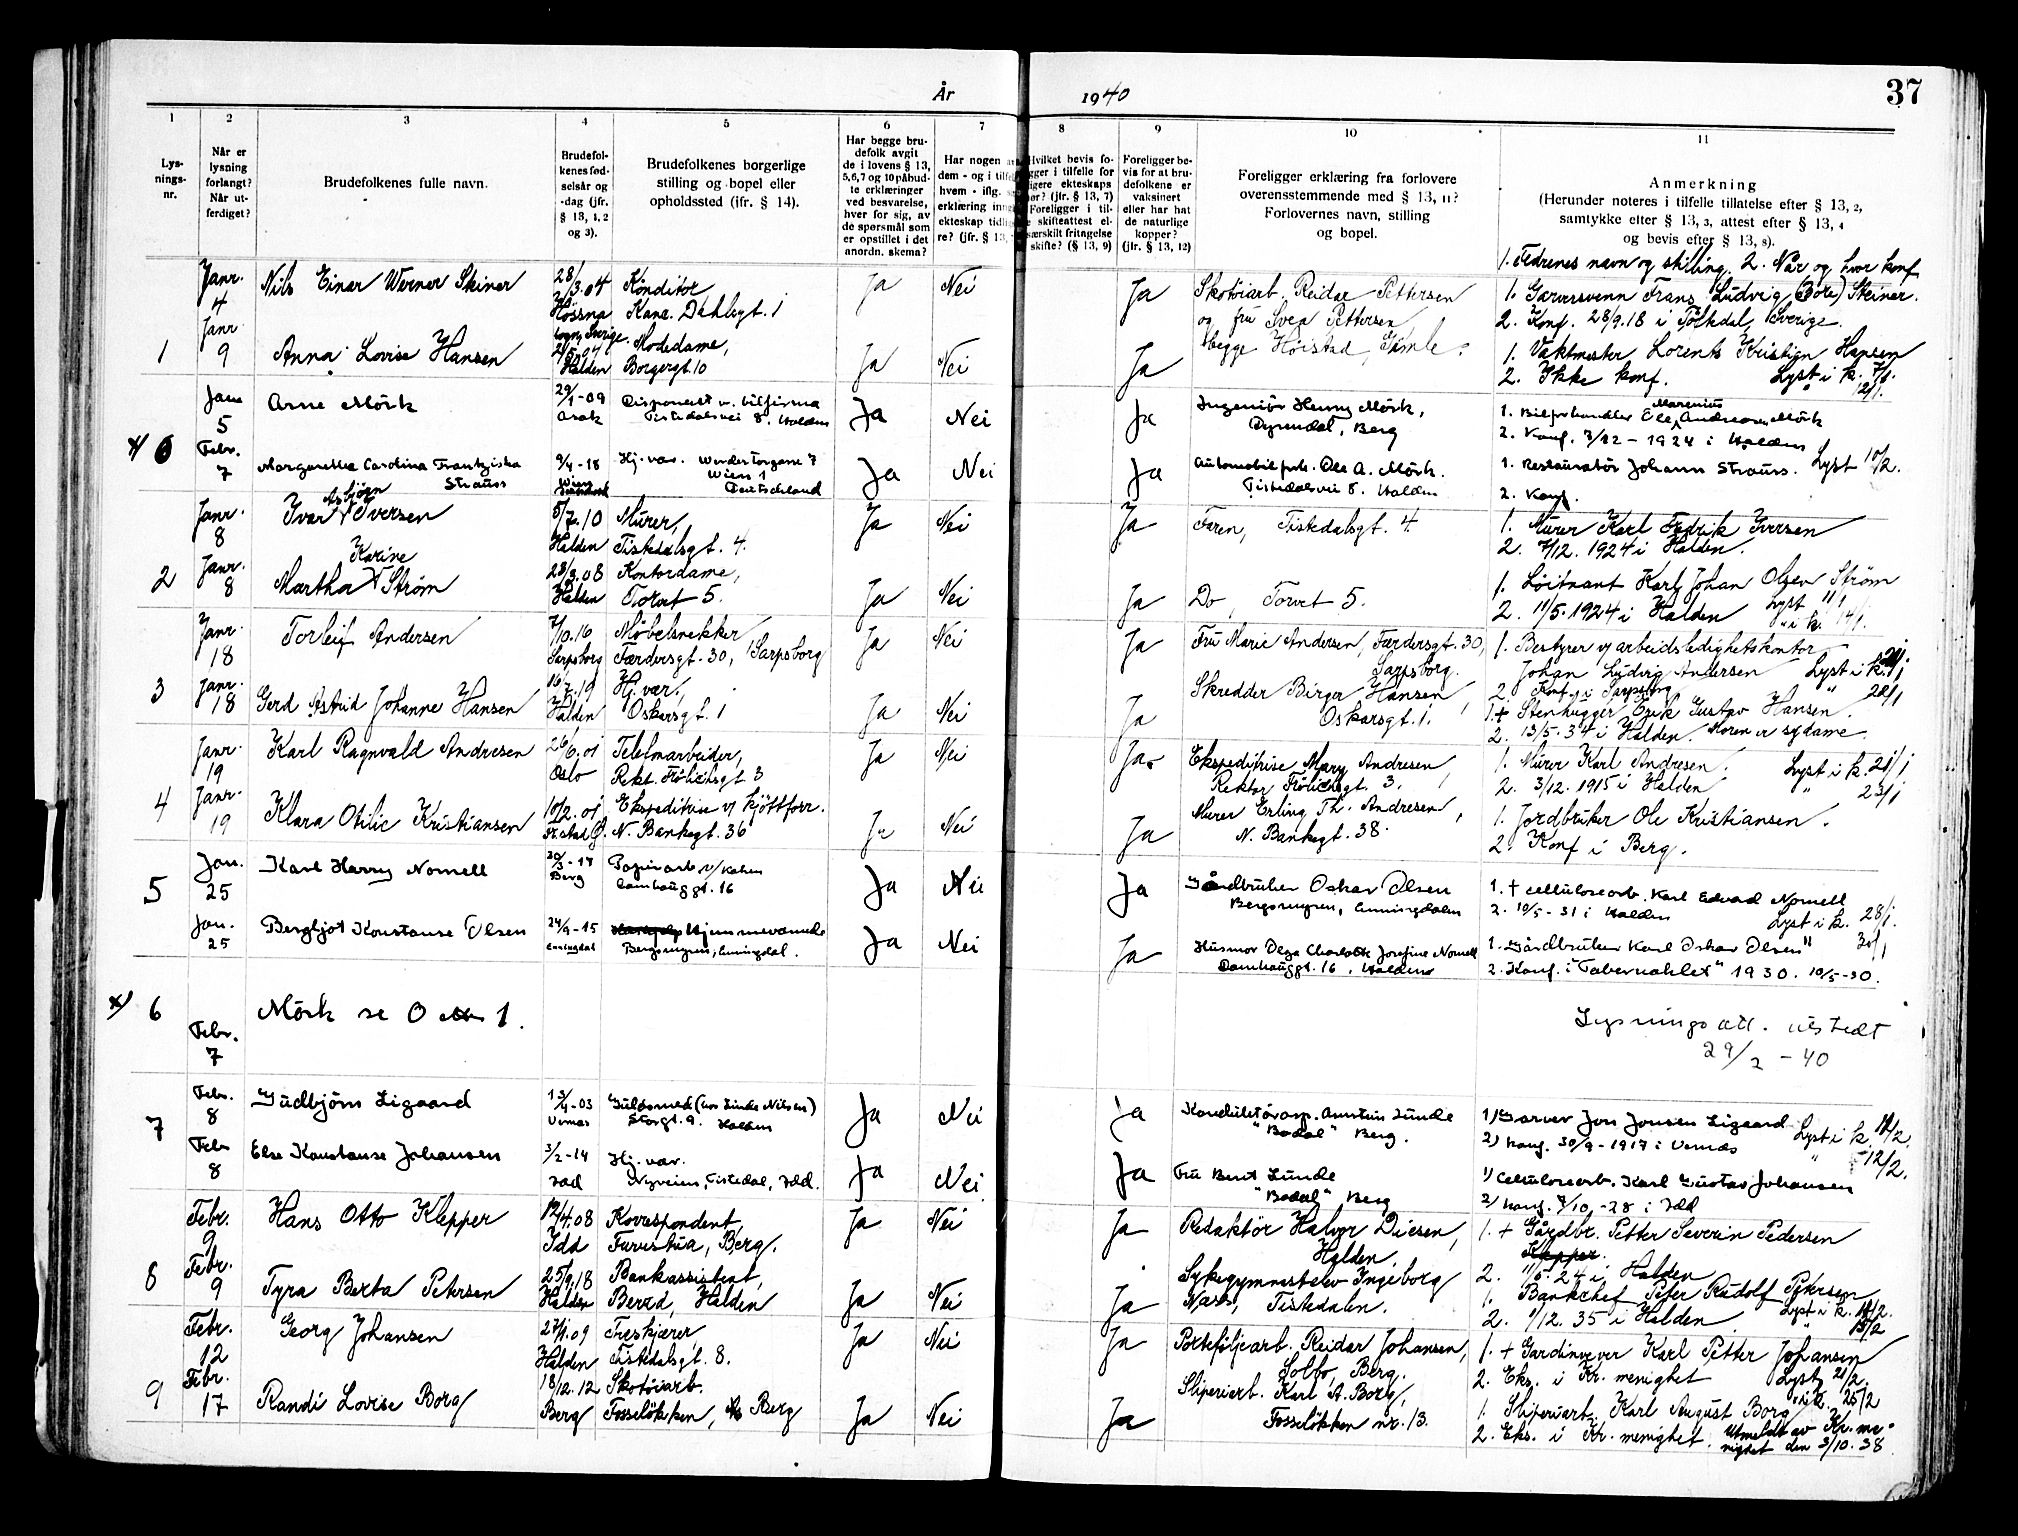 37
År 1940
1 2 3 4 5 6 7 8 9 10 11
Lys-
nings-
nr.
Når er
lysning
forlangt?
Når ut-
ferdiget?
Brudefolkenes fulle navn.
Brudefol-
kenes fød-
selsår og
-dag (jfr.
§ 13, 1, 2
og 3).
Brudefolkenes borgerlige
stilling og bopel eller
opholdssted (ifr. § 14).
Har begge bru-
defolk avgit
de i lovens § 13,
5,6,7 og 10 påbud-
te erklæringer
ved besvarelse,
hver for sig, av
de spørsmål som
er opstillet i det
anordn. skema?
Har nogen
dem - og i
hvem - iflg.
erklæring
ekteskap
re? (jfr. § 13,
Hvilket bevis fo-
gger i tilfelle for
igere ekteskaps
(jfr. § 13, 7)
Foreligger i til-
skifteattest el-
særskilt fritagelse
skifte? (§ 13, 9)
Foreligger be-
vis for at bru-
defolkene er
vaksinert
eller har hat
de naturlige
kopper?
(jfr. § 13, 12)
Foreligger erklæring fra forlovere
overensstemmende med § 13, 11?
Forlovernes navn, stilling
og bopel.
Anmerkning
(Herunder noteres i tilfelle tillatelse efter § 13, 2,
samtykke efter § 13, 3, attest efter § 13, 4
og bevis efter § 13, 8).
1. Fedrenes navn og stilling. 2. Når og hvor konf.
Janr. 4 Nils Einar Werner Skiner 28/3.04 Konditor Ja Nei Ja Skotøiarb. Reidar Pettersen 1. Garversvenn Frans Ludvig Steiner.
Kanc. Dahlsgt. 1 og fru Svea Pettersen, 2. Konf. 28/9.18 i Sverige.
1 Janr 9 Anna Lovise Hansen Halden Modedame, Ja Nei Ja begge Høistad, Gimle. 1. Vaktmester Lorents Kristian Hansen
Borgergt. 10 2. Ikke konf. Lyst i k. 7/1.
12/1.
Jan 5 Arne Mörk 29/1-09 Disponent v. bilfirma Ja Nei Ja Ingeniör Henry Mörk, 1. Bilforhandler Ole Marenius Andreasen Mörk
Asak Tistedalsvei 8. Halden Berg 2. Konf. 7/12 - 1924 i Halden
x) 0 Febr. 7 Margarethe Carolina Frantziska Strauss 9/4-18 Hj. vær. Ja Nei Ja Automobilforh. Ole A. Mörk. 1. Restauratör Johann Strauss. Lyst 10/2.
Wien Wien 1 Deutschland Tistedalsvei 8. Halden 2. Konf.
Janr. 8 Ivar Asbjørn Iversen 5/7.10 Murer, Ja Nei Ja Faren, Tistedalsgt. 4. 1. Murer Karl Fredrik Iversen
Halden Tistedalsgt. 4. 2. 7/12. 1924 i Halden.
2 Janr. 8 Martha Karine Strøm 28/3.08 Kontordame, Ja Nei Ja Do, Torvet 5. 1. Løitnant Karl Johan Olsen Strøm
Halden Torvet 5. 2. 11/5. 1924 i Halden Lyst 11/1
" i k. 14/1.
Janr. 18 Torleif Andersen 7/10.16 Møbelsnekker Ja Nei Ja Fru Marie Andersen, Færdersgt. 30, 1. Bestyrer v/ arbeidsledighetskontor
Sarpsborg Færdersgt. 30, Sarpsborg Sarpsborg. Johan Ludvig Andersen Lyst i k. 21/1
2. Konf. i Sarpsborg " 22/1
3 Janr. 18 Gerd Astrid Johanne Hansen 16/7.19 Hj. vær., Ja Nei Ja Skredder Birger Hansen, 1. + Stenhugger Erik Gustav Hansen.
Halden Oskarsgt. 1 Oskarsgt. 1. 2. 13/5. 34 i Halden. Moren er sydame.
Janr. 19 Karl Ragnvald Andresen 26/6.01 Telefonarbeider, Ja Nei Ja Ekspeditrise Mary Andresen, 1. Murer Karl Andresen. Lyst i k. 21/1
Oslo Rekt. Frölichsgt 3 Rektor Frölichsgt. 3. 2. 3/12. 1915 i Halden " 23/1
4 Janr. 19 Klara Otilie Kristiansen 10/2.01 Ekspeditrise v/ kjöttforr. Ja Nei Ja Murer Erling Th. Andresen, 1. Jordbruker Ole Kristiansen.
N. Bankegt. 36 N. Bankegt. 38. 2. Konf i Berg.
5 Jan. 25 Karl Harry Nomell Berg Papirarb Ja Nei Ja Gårdbruker Oskar Olsen 1. + Celluloseearb. Karl Edvard Nomell
Damhauggt. 16 2. 10/5-31 i Halden Lyst i k. 28/1.
Jan. 25 Bergljot Konstanse Olsen 24/9-15 Hjemmeværende Ja Nei Ja Husmor Olga Charlotte Josefine Nomell 1. Gårdbruker Karl Oskar Olsen " 30/1
Damhauggt. 16, Halden 2. Konf. i "Tabernaklet" 1930. 10/5-30.
x) 6 Febr. 7 Mörk se 0 1. Lysningsatt. utstedt
29/2 - 40
7 Febr. 8 Gudbjörn Ligaard Gullsmed (hos Linde Nilsen) Ja Nei Ja Konduktörasp. Lunde 1) Garver Jon Jonsen Ligaard Lyst i k. 11/2.
Storgt. 9. Halden "Bodal" Berg. 2) Konf. 30/9-1917 i
Febr 8 Else Konstanse Johansen 3/2-14 Hj. vær. Ja Nei Ja Fru Berit Lunde 1) Celluloseearb. Karl Gustav Johansen " 12/2.
Idd Nyveien, Tistedal, Idd. "Bodal" Berg 2) Konf. 7/10-28 i Idd
Febr. 9 Hans Otto Klepper 12/4.08 Korrespondent, Ja Nei Ja Redaktör Halvor Diesen, 1. + Gårdbr. Petter Severin Pedersen
Idd Furustua, Berg. Halden. Klepper.
2. 11/5. 24 i Halden
8 Febr. 9 Tyra Berta Petersen 25/9.18 Bankassistent, Ja Nei Ja Sykegymnastelev Ingeborg 1. Bankchef Peter Rudolf Petersen
Halden Halden Næss, Tistedalen. 2. 1/12. 35 i Halden Lyst i k. 11/2.
" 13/2
Febr. 12 Georg Johansen 27/1.09 Treskjærer Ja Nei Ja Porteföljearb. Reidar Johansen, 1. + Gardinvever Karl Petter Johansen
Halden Tistedalsgt. 8. Solbo, Berg. 2. Eks. i Fr. menighet Lyst 21/2.
9 Febr. 17 Randi Lovise Borg 18/12.12 Skotöiarb. Ja Nei Ja Sliperiarb. Karl A. Borg, 1. Sliperiarb. Karl August Borg " i k. 25/2
Berg Fosselökken, Berg Fosselökken nr. 13. 2. Eks. i Fr. menighet. Utmeldt av Fr. me-
nighet den 3/10. 38